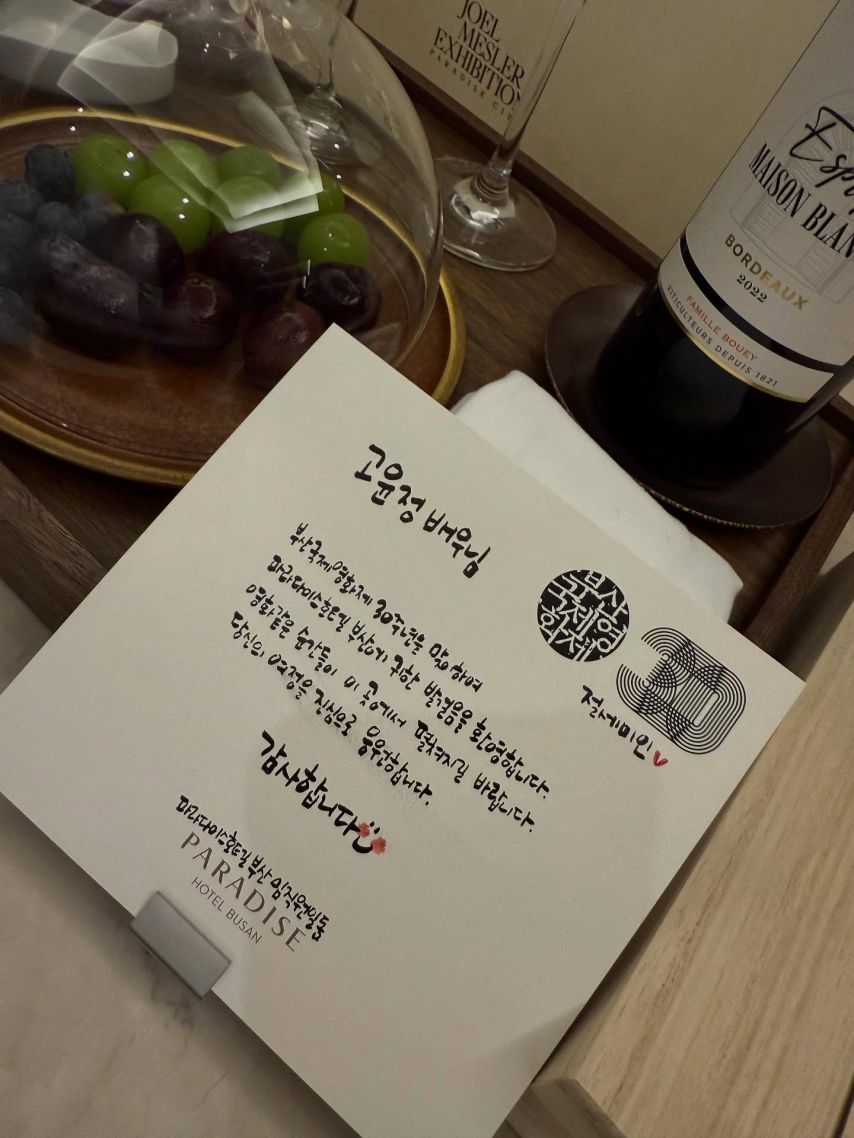 JOEL
MESLER
EXHIBITION
PARADISE CIT
MAISON BLAN
BORDEAUX
2022
FAMILLE BOUEY
VITICULTEURS DEPUIS 1821
고윤정 배우님
부산국제영화제 30주년을 맞이하여
파라다이스호텔 부산에 귀한 발걸음을 환영합니다.
영화같은 순간들이 이 곳에서 펼쳐지길 바랍니다.
당신의 여정을 진심으로 응원합니다.
감사합니다
부산
국제영
화제
30
절세미인
파라다이스호텔 부산 임직원일동
PARADISE
HOTEL BUSAN